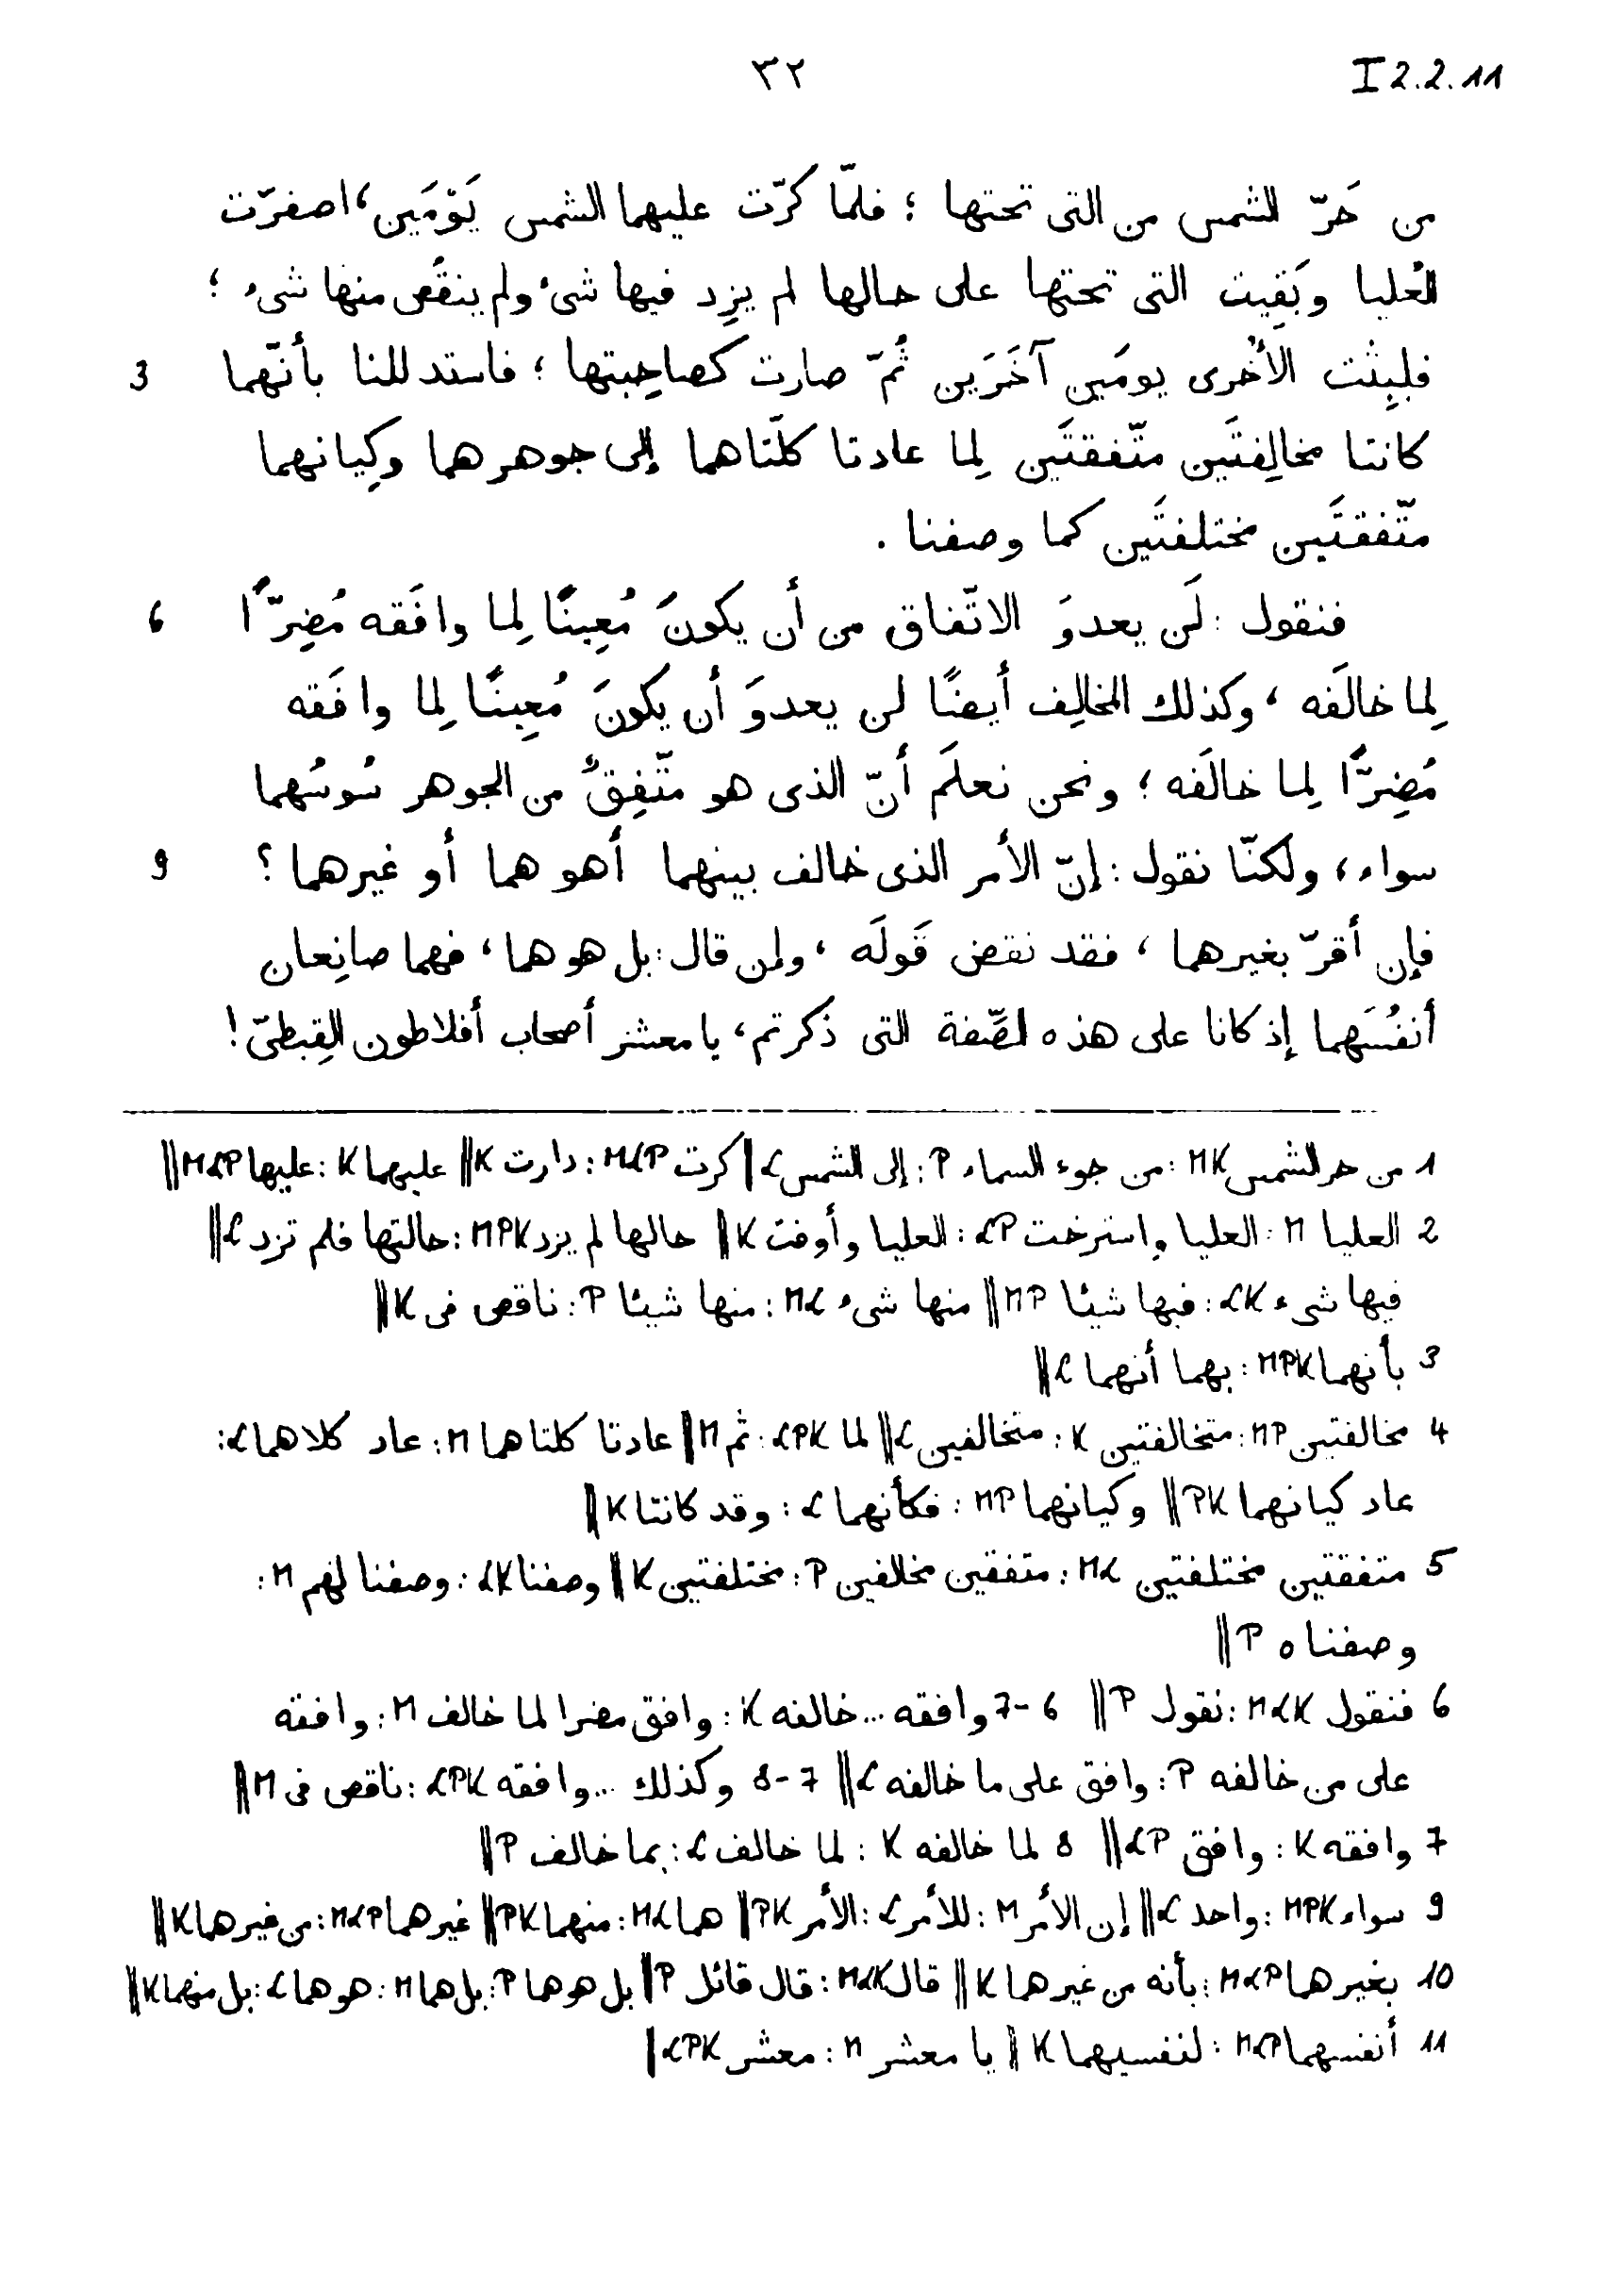 ٣٢
I 2.2.11
من حَرّ الشمس من التى تحتها ؛ فلمّا كرّت عليهما الشمس يَوْمَين، اصفرّت
العُليا وبَقِيت التى تحتها على حالها لم يزِد فيها شىء ولم ينقُص منها شىء ؛
فلبِثت الأُخرى يومَين آخَرَين ثُمّ صارت كصاحِبتها ؛ فاستدللنا بأنّهما 3
كانتا مخالِفتَين متّفقتَين لِما عادتا كلتاهما إلى جوهرهما وكِيانهما
متّفقتَين مختلفتَين كما وصفنا .
فنقول : لَن يعدوَ الاتّفاق من أن يكونَ مُعِينًا لِما وافَقه مُضِرًّا 6
لِما خالَفه ، وكذلك المخالِف أيضًا لن يعدوَ أن يكونَ مُعِينًا لِما وافَقه
مُضِرًّا لِما خالَفه ؛ ونحن نعلَم أنّ الذى هو متّفِقٌ من الجوهر سُوسُهما
سواء ، ولكنّا نقول : إنّ الأمر الذى خالف بينهما أهو هما أو غيرهما ؟ 9
فإن أقرّ بغيرهما ، فقد نقض قَولَه ، وإن قال : بل هو هما ، فهما صانِعان
أنفُسَهما إذ كانا على هذه الصّفة التى ذكرتم ، يا معشر أصحاب أفلاطون القِبطىّ !
1 من حر الشمس MK : من جوء السماء P : إلى الشمس L ‖ كرت MLP : دارت K ‖ عليهما K : عليها MLP ‖
2 العليا M : العليا واسترخت LP : العليا وأوفت K ‖ حالها لم يزد MPK : حالتها فلم تزد L ‖
فيها شىء LK : فيها شيئا MP ‖ منها شىء ML : منها شيئا P : ناقص فى K ‖
3 بأنهما MPK : بهما أنهما L ‖
4 مخالفتين MP : متخالفتين K : متخالفين L ‖ لما LPK : ثم M ‖ عادتا كلتاهما M : عاد كلاهما L :
عاد كيانهما PK ‖ وكيانهما MP : فكأنهما L : وقد كانتا K ‖
5 متفقتين مختلفتين ML : متفقين مخالفين P : مختلفتين K ‖ وصفنا LK : وصفنا لهم M :
وصفناه P ‖
6 فنقول MLK : نقول P ‖ 6-7 وافقه ... خالفه K : وافق مضرا لما خالف M : وافقه
على من خالفه P : وافق على ما خالفه L ‖ 7-8 وكذلك ... وافقه LPK : ناقص فى M ‖
7 وافقه K : وافق LP ‖ 8 لما خالفه K : لما خالف L : بما خالف P ‖
9 سواء MPK : واحد L ‖ إن الأمر M : للأمر L : الأمر PK ‖ هما ML : منهما PK ‖ غيرهما MLP : من غيرهما K ‖
10 بغيرهما MLP : بأنه من غيرهما K ‖ قال MLK : قال قائل P ‖ بل هو هما P : بل هما M : هو هما L : بل منهما K ‖
11 أنفسهما MLP : لنفسيهما K ‖ يا معشر M : معشر LPK ‖